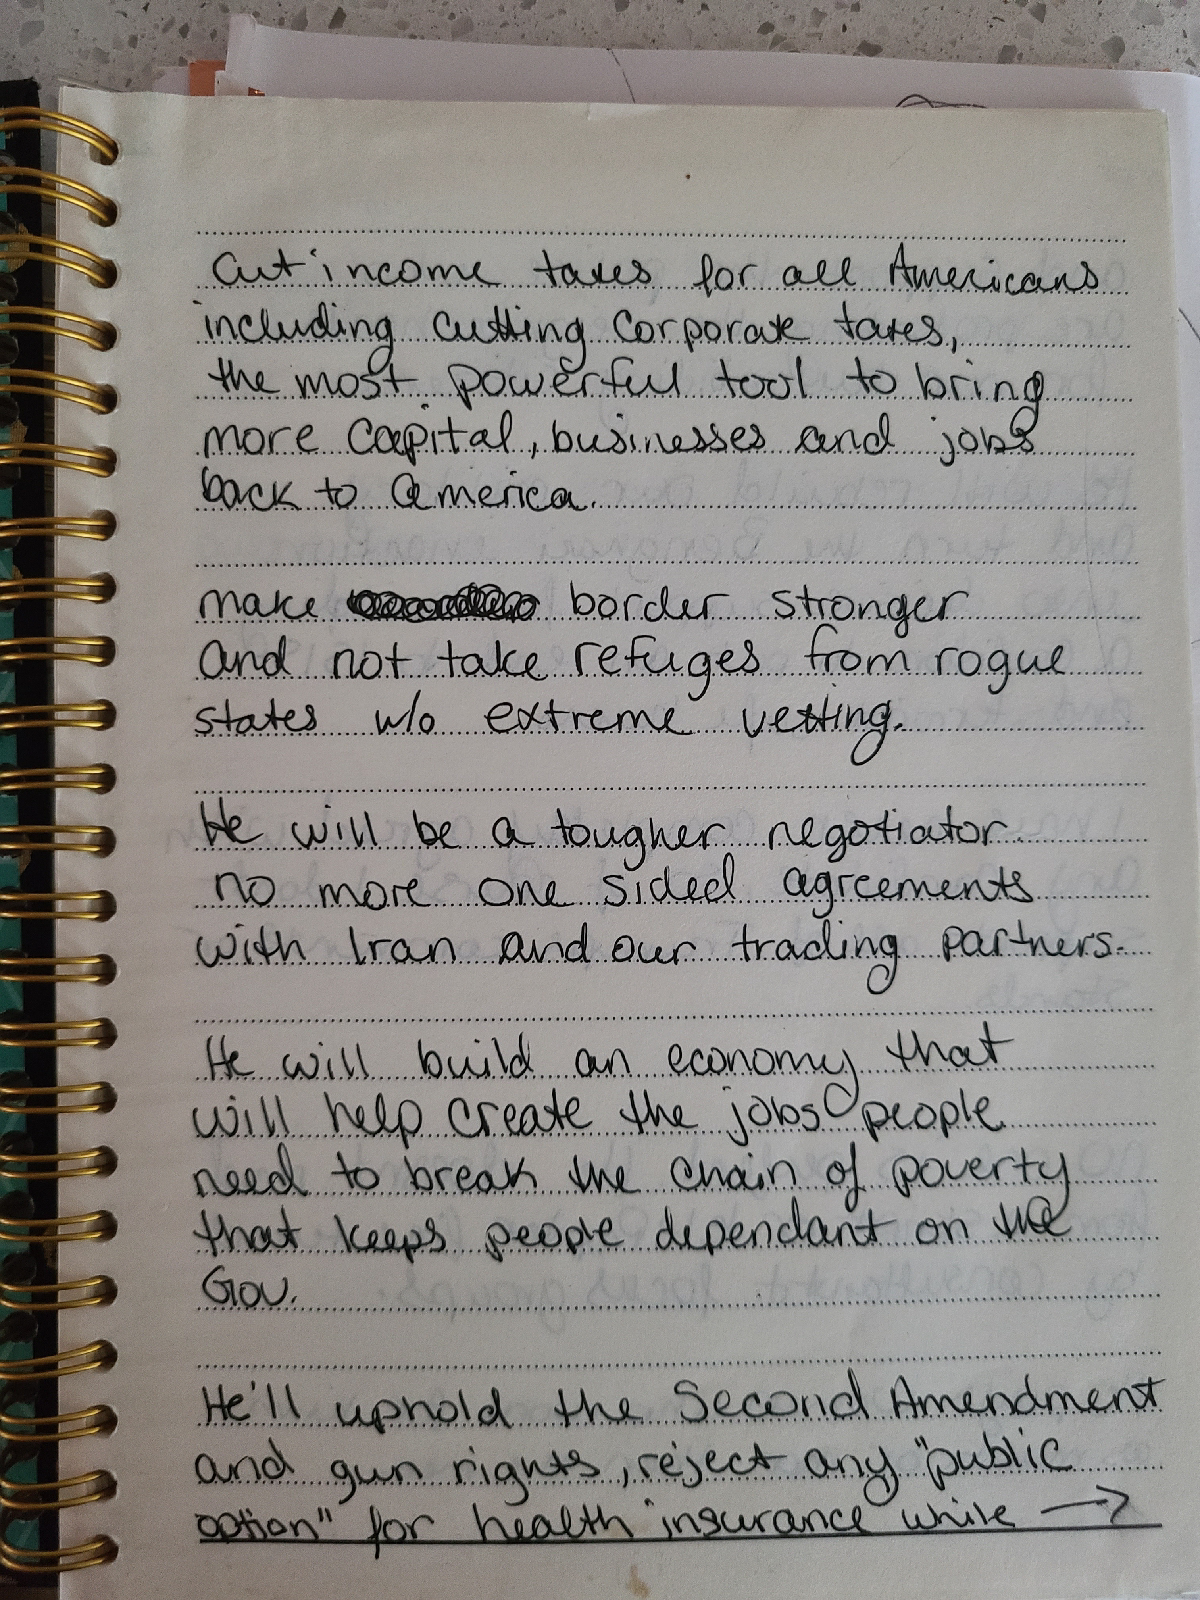 Cut income taxes for all Americans
including cutting corporate taxes,
the most powerful tool to bring
more capital, businesses and jobs
back to america.
make border stronger
and not take refuges from rogue
states w/o extreme vetting.
He will be a tougher negotiator
no more one sided agreements
with Iran and our trading partners.
He will build an economy that
will help create the jobs people
need to break the chain of poverty
that keeps people dependant on the
Gov.
He'll uphold the Second Amendment
and gun rights, reject any "public
option" for health insurance while →